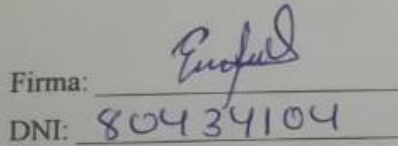 Firma:
DNI: 80434104